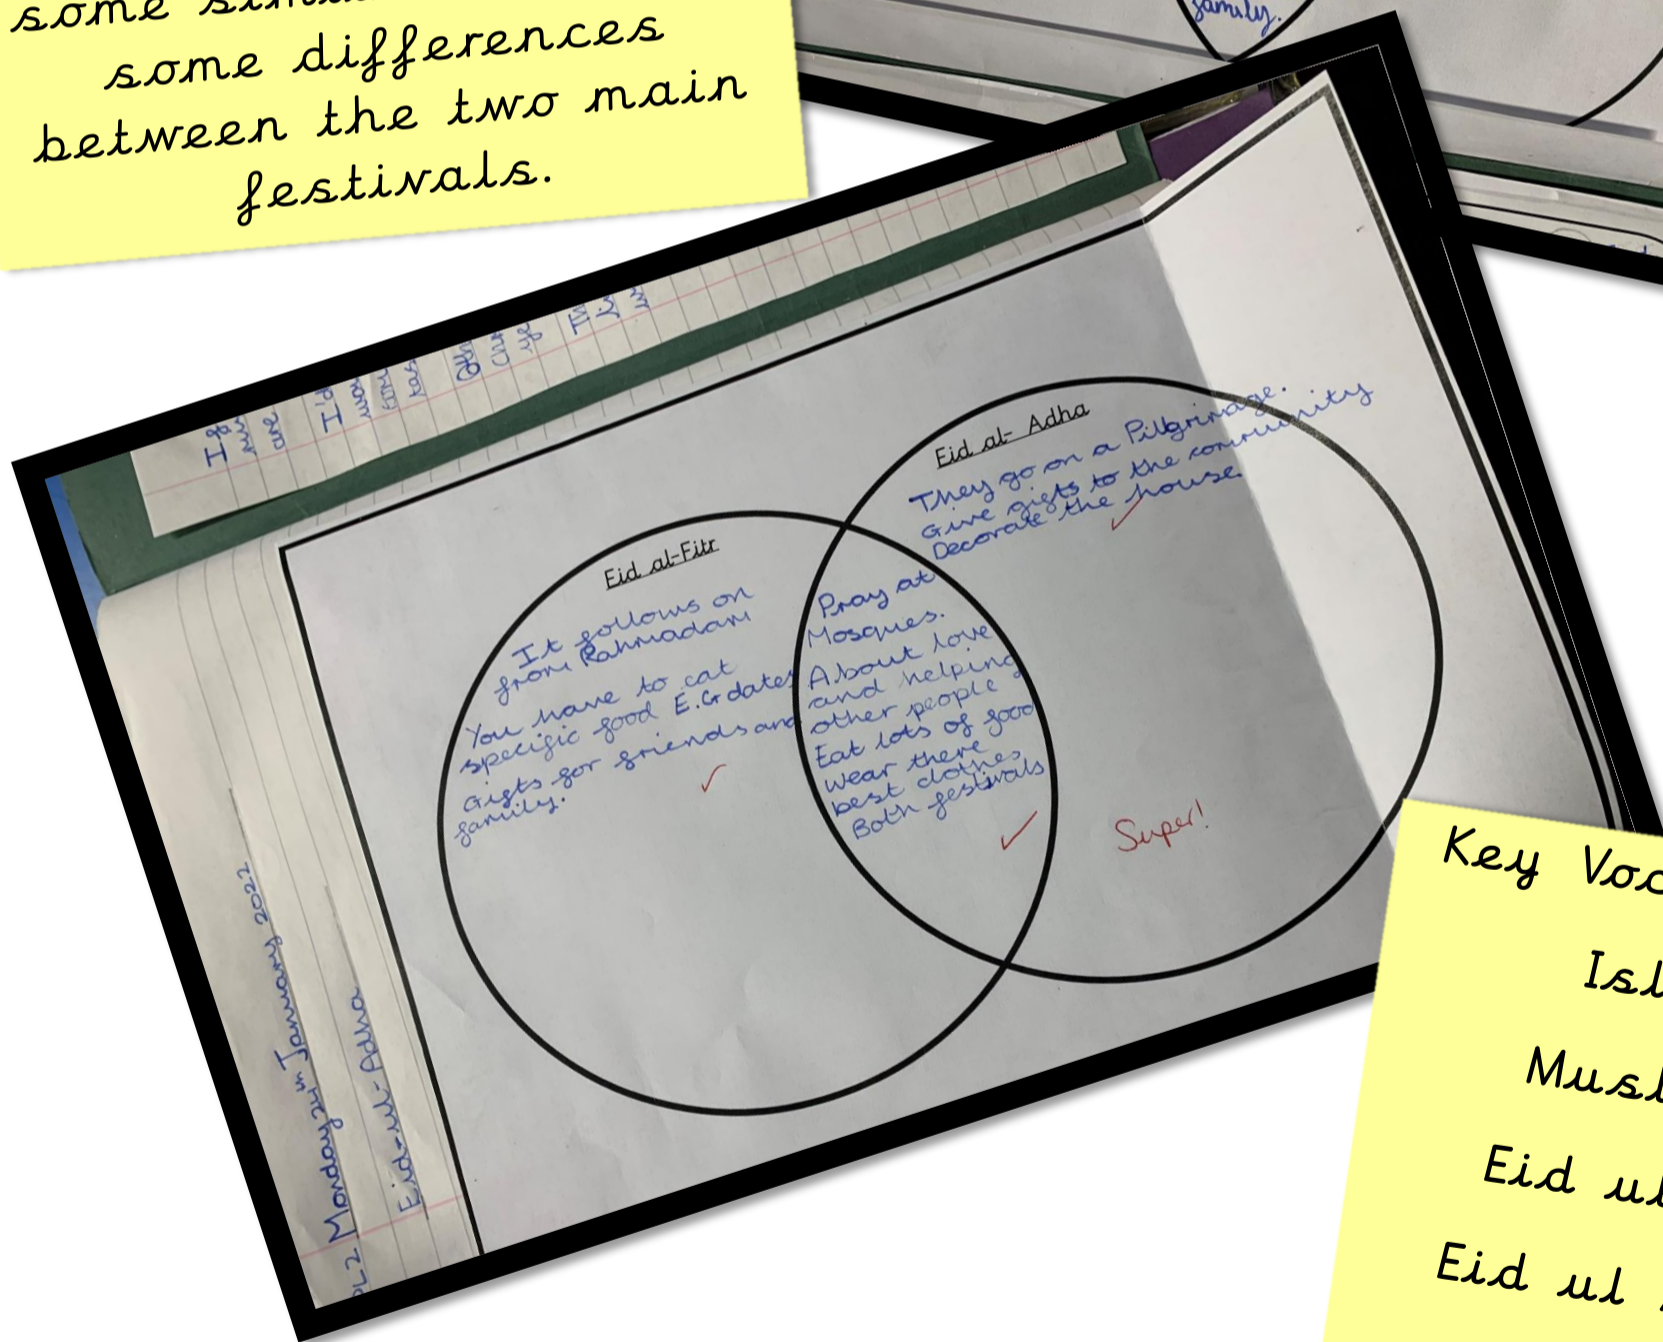 some
some differences
between the two main
festivals.
family.
Eid al-Fitr
It follows on
from Rahmadam
You have to eat
specific food E.G dates
Gifts for friends and
family.
Pray at
Mosques.
About love
and helping
other people
Eat lots of food
wear there
best clothes
Both festivals
Eid al- Adha
They go on a Pilgrimage.
Give gifts to the community
Decorate the house.
Super!
Monday January 2022
Eid-ul-Adha
If
are
I'd
Key Voc
Isl
Musl
Eid ul
Eid ul